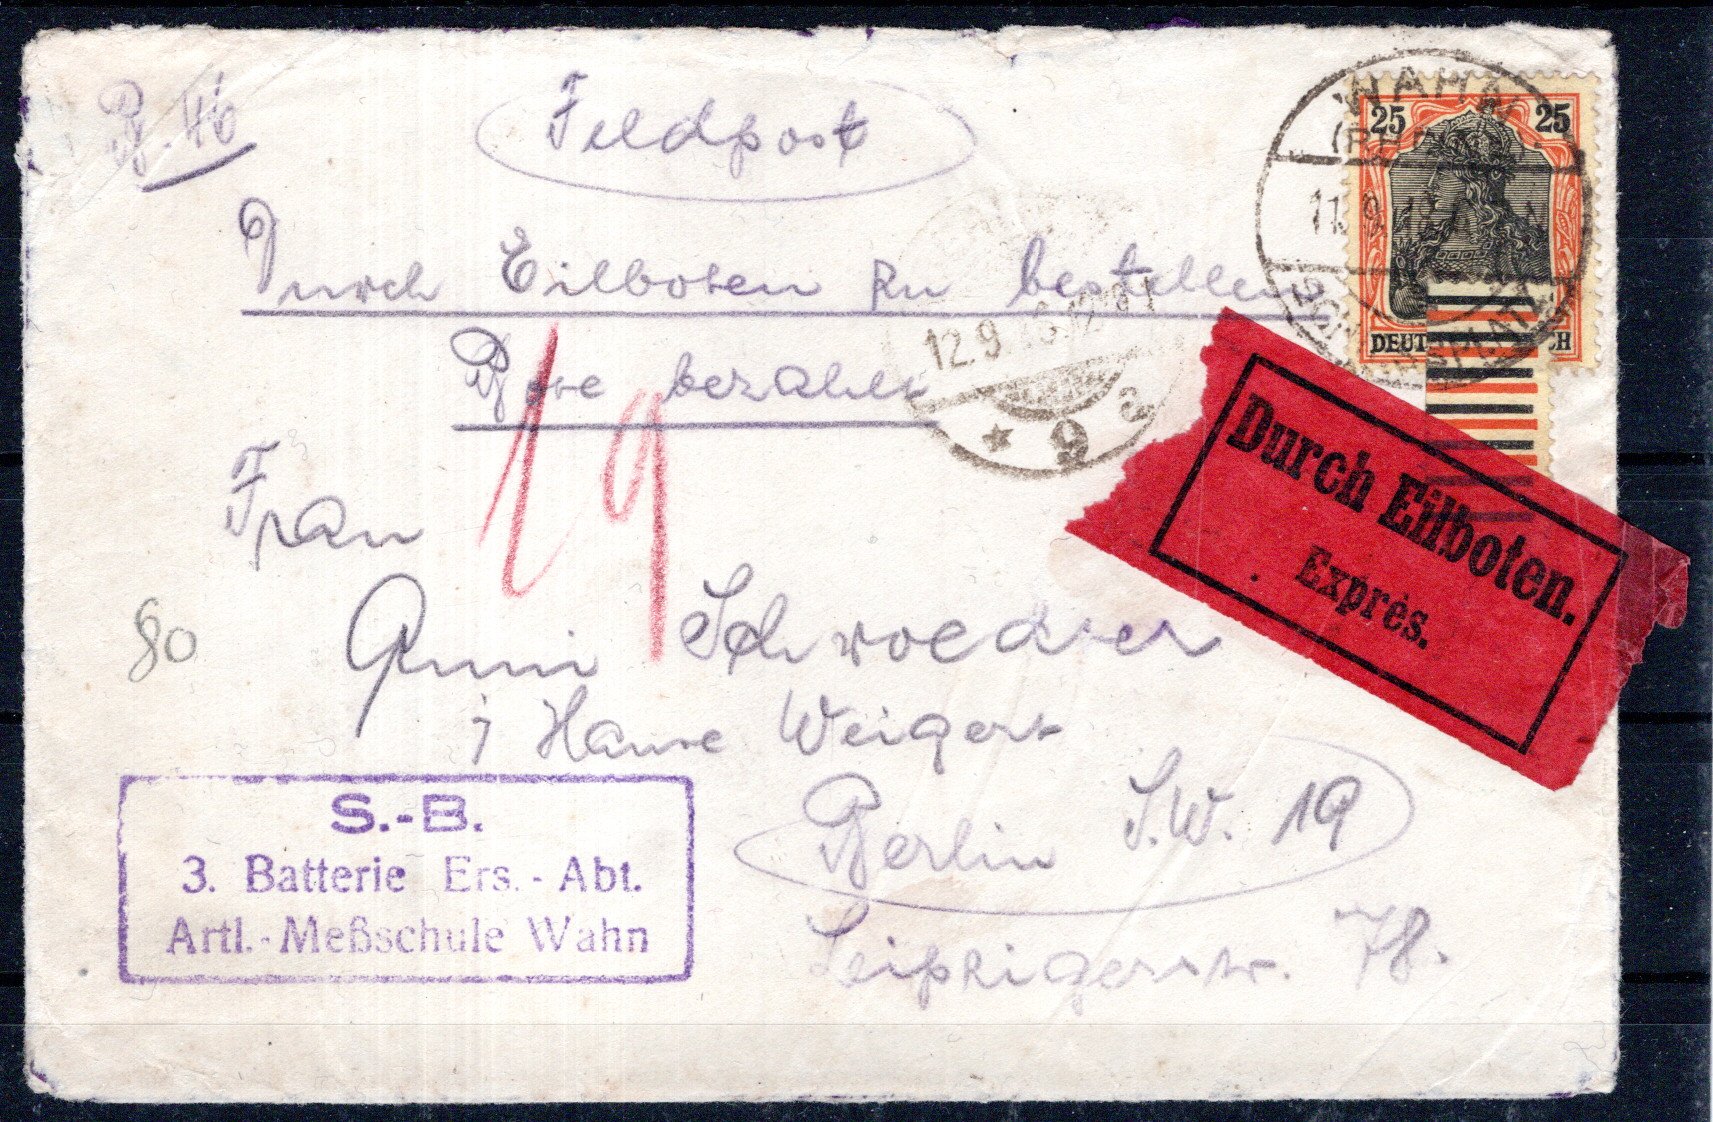 Feldpost
Durch Eilboten zu bestellen
Bote bezahlt
19
Frau
Anni Schroedter
i Hause Weigert
Berlin S.W. 19
Leipzigerstr. 78.
80
S.-B.
3. Batterie Ers.-Abt.
Artl.-Meßschule Wahn
25 25
DEUT CH
WAHN
11.9.
SCHIESSPLATZ
12.9
* 9 a
Durch Eilboten.
Exprès.